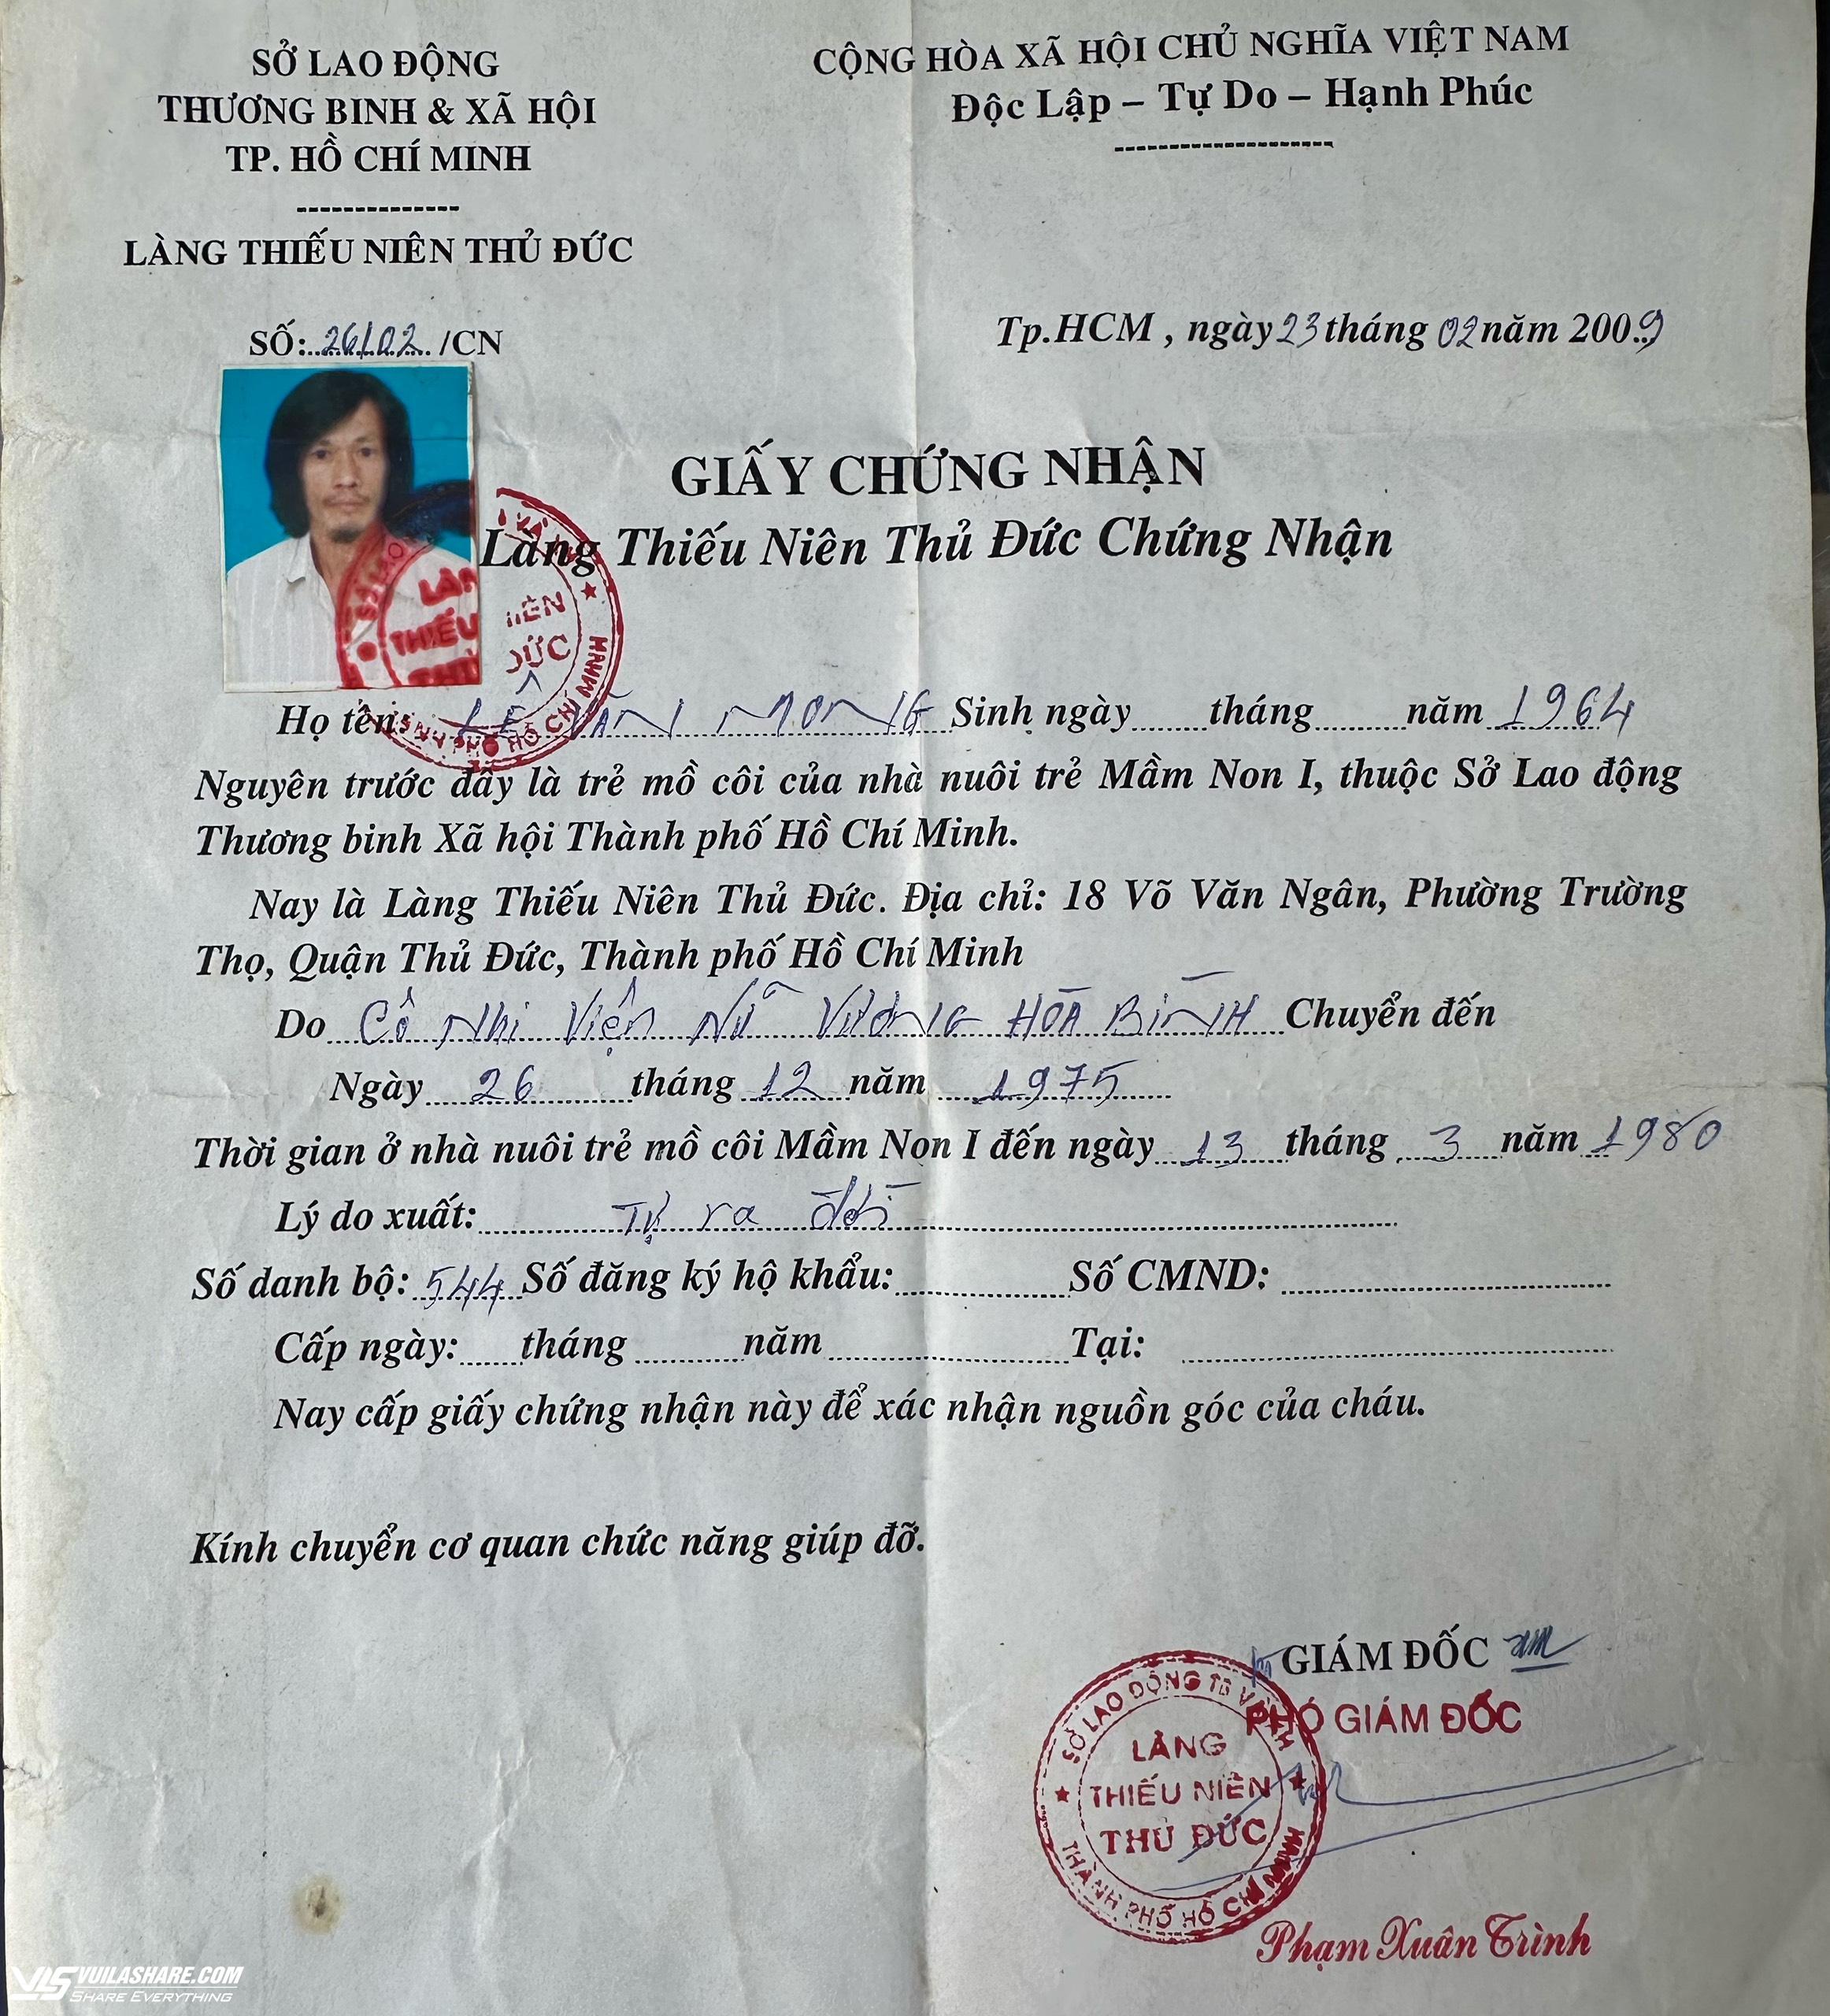 SỞ LAO ĐỘNG
THƯƠNG BINH & XÃ HỘI
TP. HỒ CHÍ MINH
LÀNG THIẾU NIÊN THỦ ĐỨC
SỐ: 26/02 /CN
CỘNG HÒA XÃ HỘI CHỦ NGHĨA VIỆT NAM
Độc Lập – Tự Do – Hạnh Phúc
Tp.HCM , ngày 23 tháng 02 năm 2009
GIẤY CHỨNG NHẬN
Làng Thiếu Niên Thủ Đức Chứng Nhận
Họ tên: LÊ VĂN MONG Sinh ngày tháng năm 1964
Nguyên trước đây là trẻ mồ côi của nhà nuôi trẻ Mầm Non I, thuộc Sở Lao động
Thương binh Xã hội Thành phố Hồ Chí Minh.
Nay là Làng Thiếu Niên Thủ Đức. Địa chỉ: 18 Võ Văn Ngân, Phường Trường
Thọ, Quận Thủ Đức, Thành phố Hồ Chí Minh
Do Cô Nhi Viện Nữ Vương HÒA BÌNH Chuyển đến
Ngày 26 tháng 12 năm 1975
Thời gian ở nhà nuôi trẻ mồ côi Mầm Non I đến ngày 13 tháng 3 năm 1980
Lý do xuất: Tự ra đời
Số danh bộ: 544 Số đăng ký hộ khẩu: Số CMND:
Cấp ngày: tháng năm Tại:
Nay cấp giấy chứng nhận này để xác nhận nguồn góc của cháu.
Kính chuyển cơ quan chức năng giúp đỡ.
GIÁM ĐỐC
PHÓ GIÁM ĐỐC
SỞ LAO ĐỘNG TB VÀ XH
LÀNG
THIẾU NIÊN
THỦ ĐỨC
THÀNH PHỐ HỒ CHÍ MINH
Phạm Xuân Trình
VLS VUILASHARE.COM
SHARE EVERYTHING